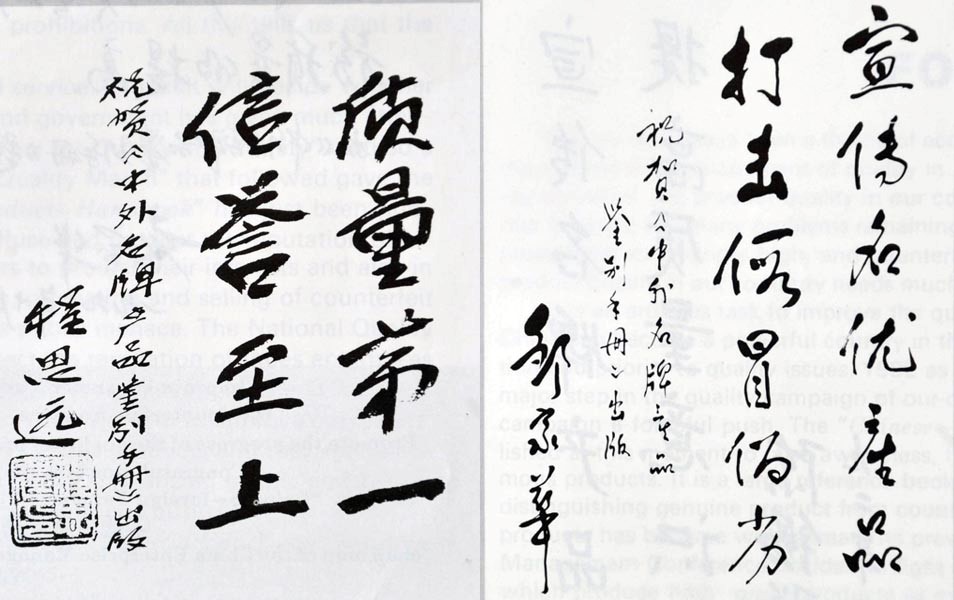 宣传名优产品
打击假冒伪劣
祝贺《中外名牌产品
鉴别手册》出版
质量第一
信誉至上
祝贺《中外名牌产品鉴别手册》出版
程思远